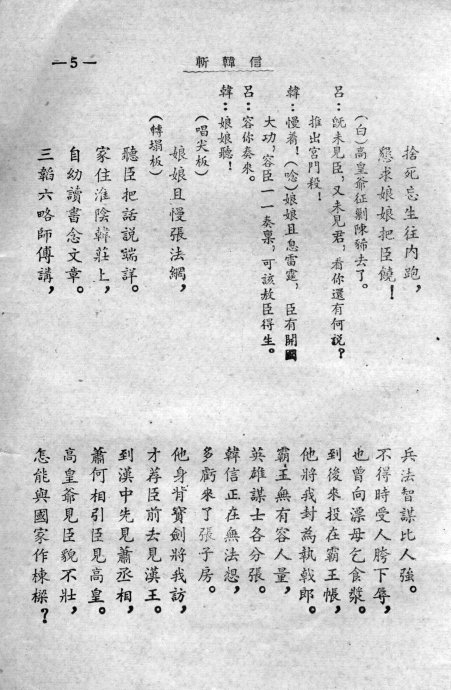 —5—
斬韓信
捨死忘生往內跑，
懇求娘娘把臣饒！
（白）高皇爺征剿陳豨去了。
呂：旣未見臣，又未見君，看你還有何説？
推出宮門殺！
韓：慢着！（唸）娘娘且息雷霆，臣有開國
大功，容臣一一奏稟，可該赦臣得生。
呂：容你奏來。
韓：娘娘聽！
（唱尖板）
娘娘且慢張法網，
（轉塌板）
聽臣把話説端詳。
家住淮陰韓莊上，
自幼讀書念文章。
三韜六略師傅講，
兵法智謀比人強。
不得時受人胯下辱，
也曾向漂母乞食漿。
到後來投在霸王帳，
他將我封為執戟郎。
霸王無有容人量，
英雄謀士各分張。
韓信正在無法想，
多虧來了張子房。
他身背寶劍將我訪，
才荐臣前去見漢王。
到漢中先見蕭丞相，
蕭何相引臣見高皇。
高皇爺見臣貌不壯，
怎能與國家作棟樑？